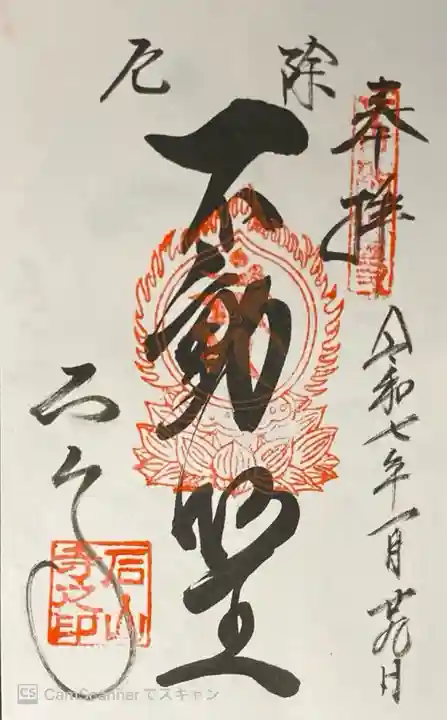 奉拝
令和七年一月廿九日
厄除
不動明王
石山寺之印
CS CamScanner でスキャン